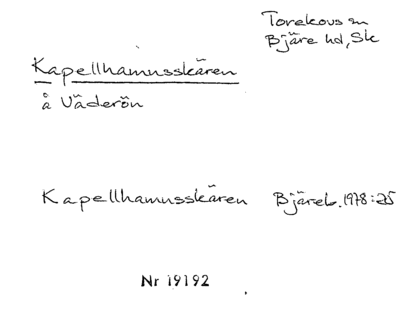 Torekovs sn
Bjäre hd, Sk
Kapellhamnsskären
å Väderön
Kapellhamnsskären Bjäreb. 1978:25
Nr 19192